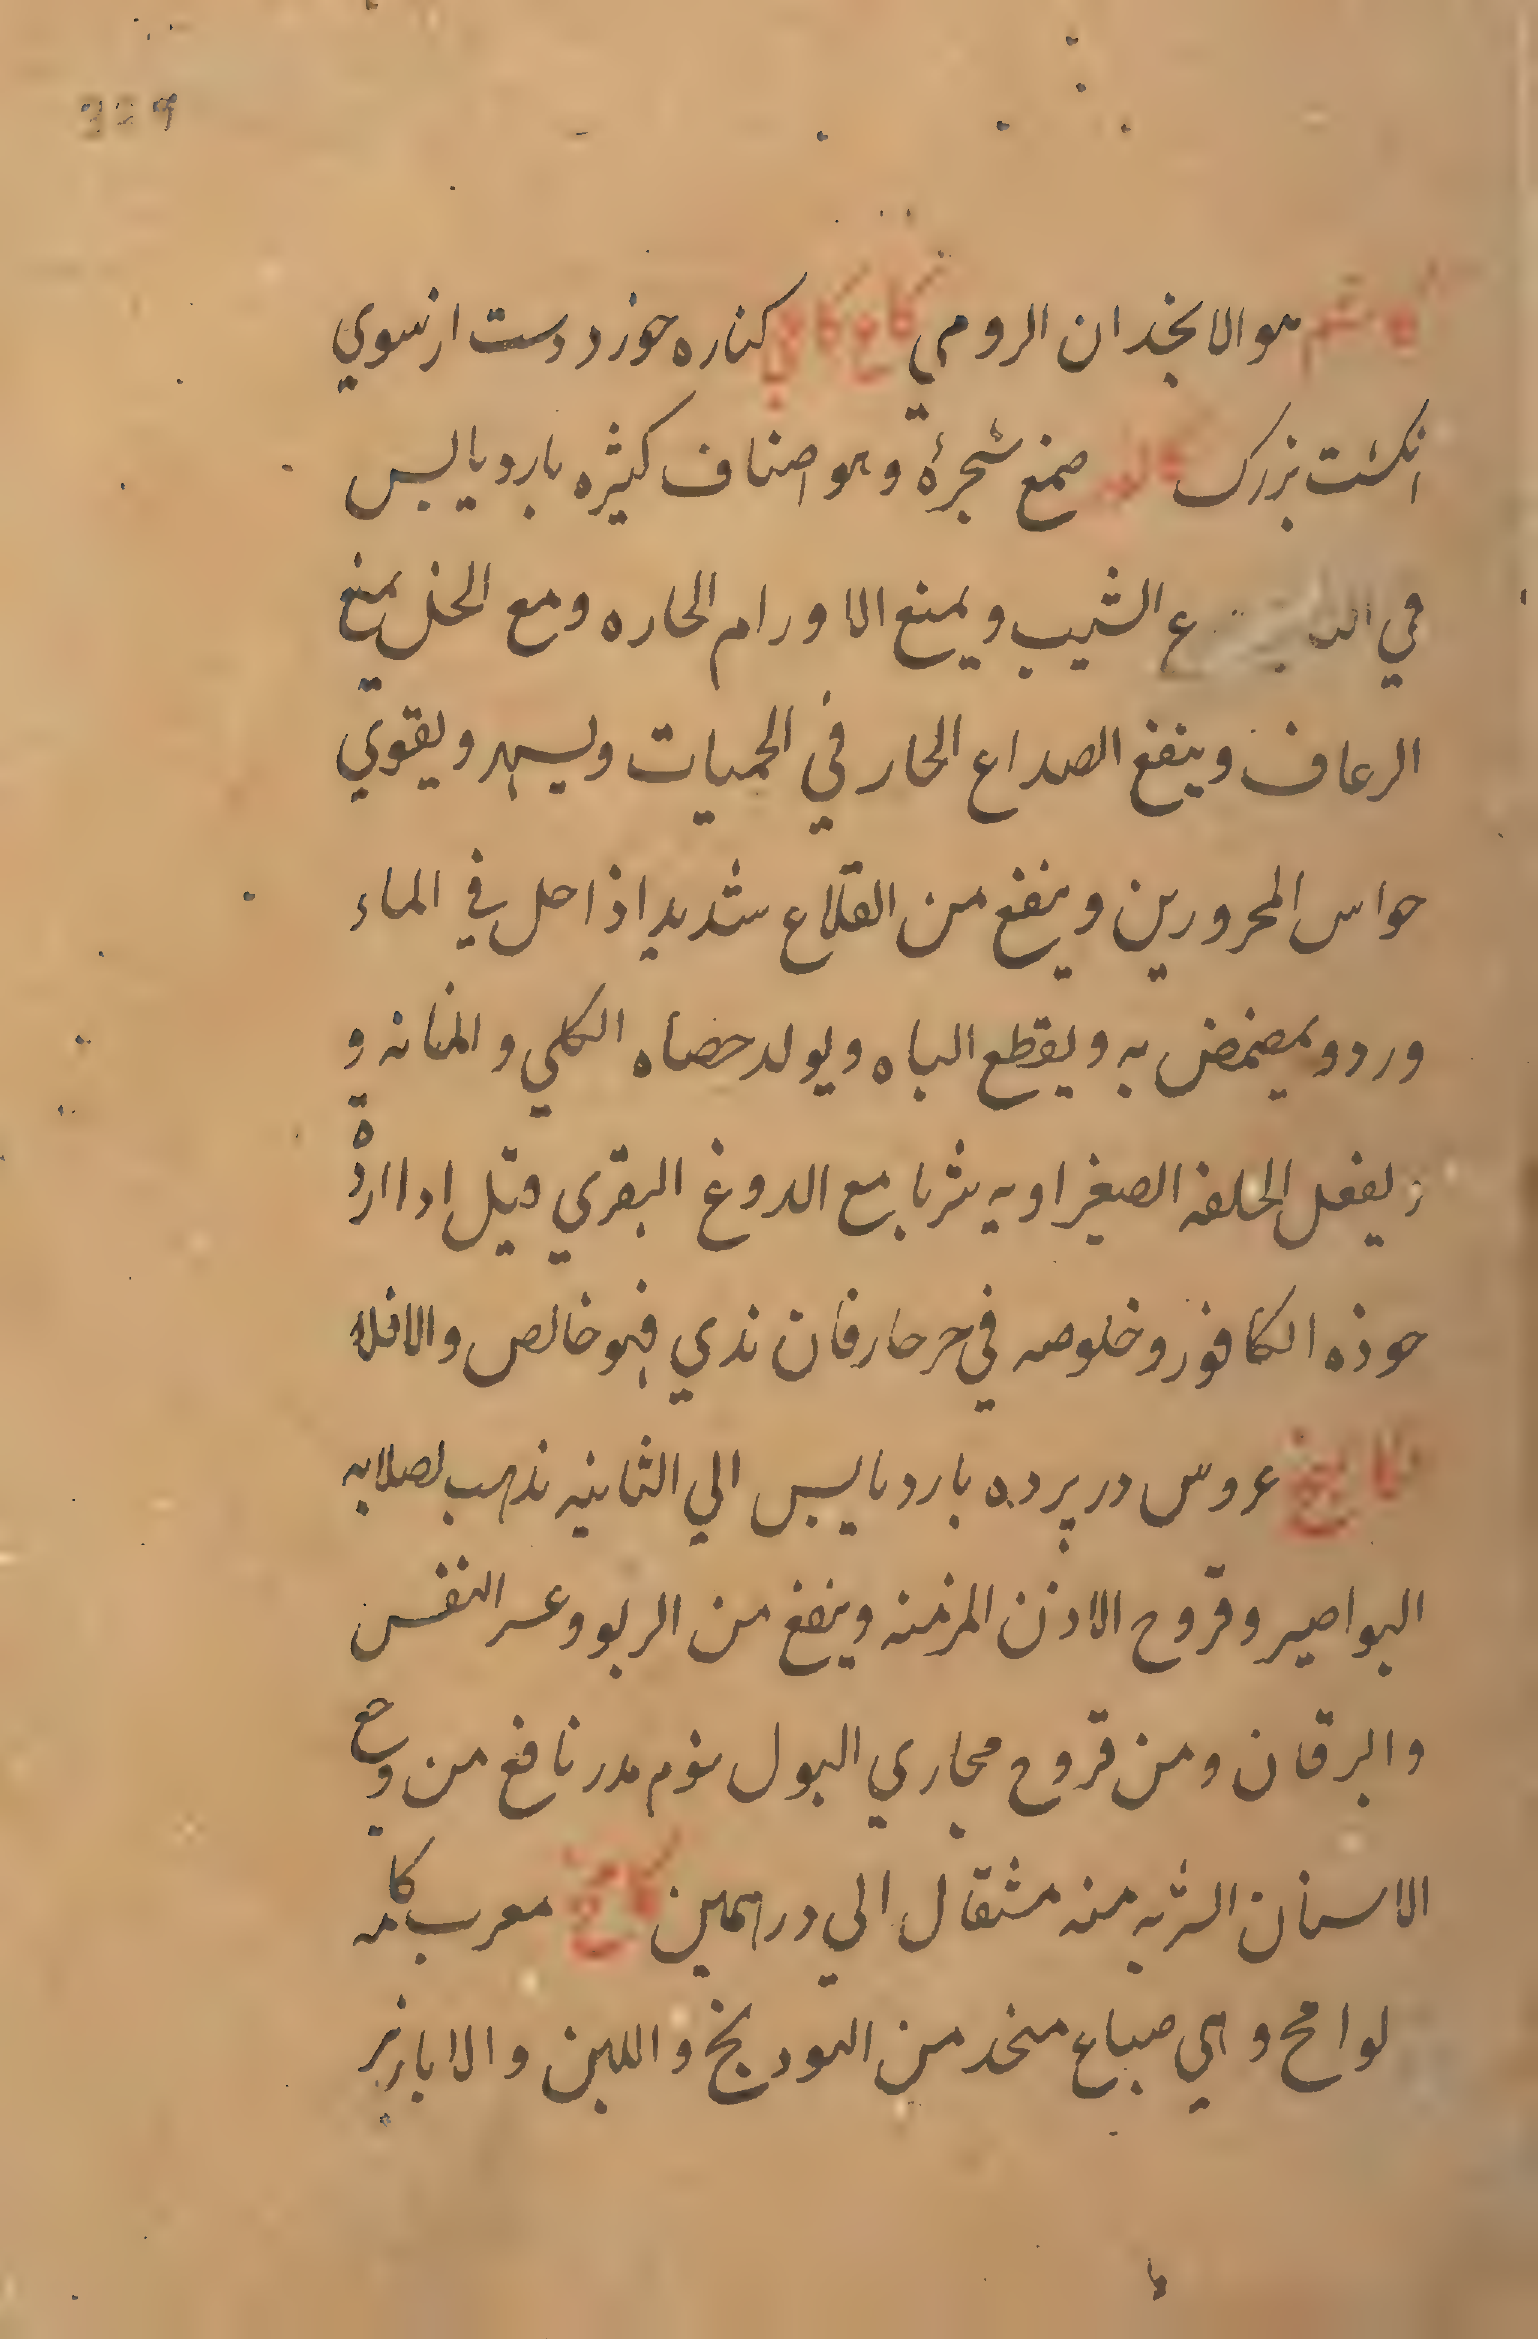 329
كاشم هو الانجدان الرومي كاع كاعي كناره خورد دست از سوي
انكشت بزرك صمغ شجرة وهو اصناف كثيره بارد يابس
في ع الشيب ويمنع الاورام الحاره ومع الخل يمنع
الرعاف وينفع الصداع الحار في الحميات ويسهر ويقوي
حواس المحرورين وينفع من القلاع شديدا اذا حل في الماء
ورد ويمضمض به ويقطع الباه ويولد حصاه الكلي والمثانه و
يفعل الحلفه الصفراويه شربا مع الدوغ البقري وقيل اذا اردة
جوذه الكافور وخلوصه في خر حار فان ندي فهو خالص والا فلا
كاكنج عروس در پرده بارد يابس الي الثانيه يذهب لصلابه
البواصير وقروح الاذن المزمنه وينفع من الربو وعسر النفس
واليرقان ومن قروح مجاري البول منوم مدر نافع من وجع
الاسنان الشربه منه مثقال الي درهمين كامخ معرب كامه
لوامخ وهي صباغ متخذ من الفودنج واللبن والابازير